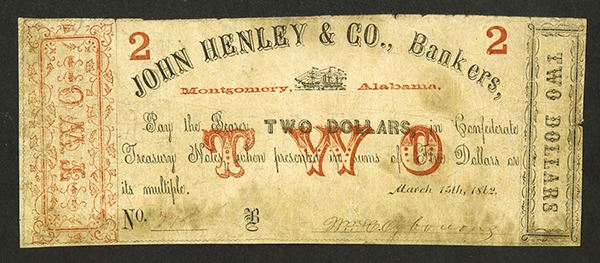 2 2
JOHN HENLEY & CO., Bankers,
Montgomery, Alabama,
Pay the Bearer TWO DOLLARS, in Confederate
Treasury Notes when presented in sums of Five Dollars or
its multiple. March 15th, 1862
No. B
TWO
TWO
TWO DOLLARS